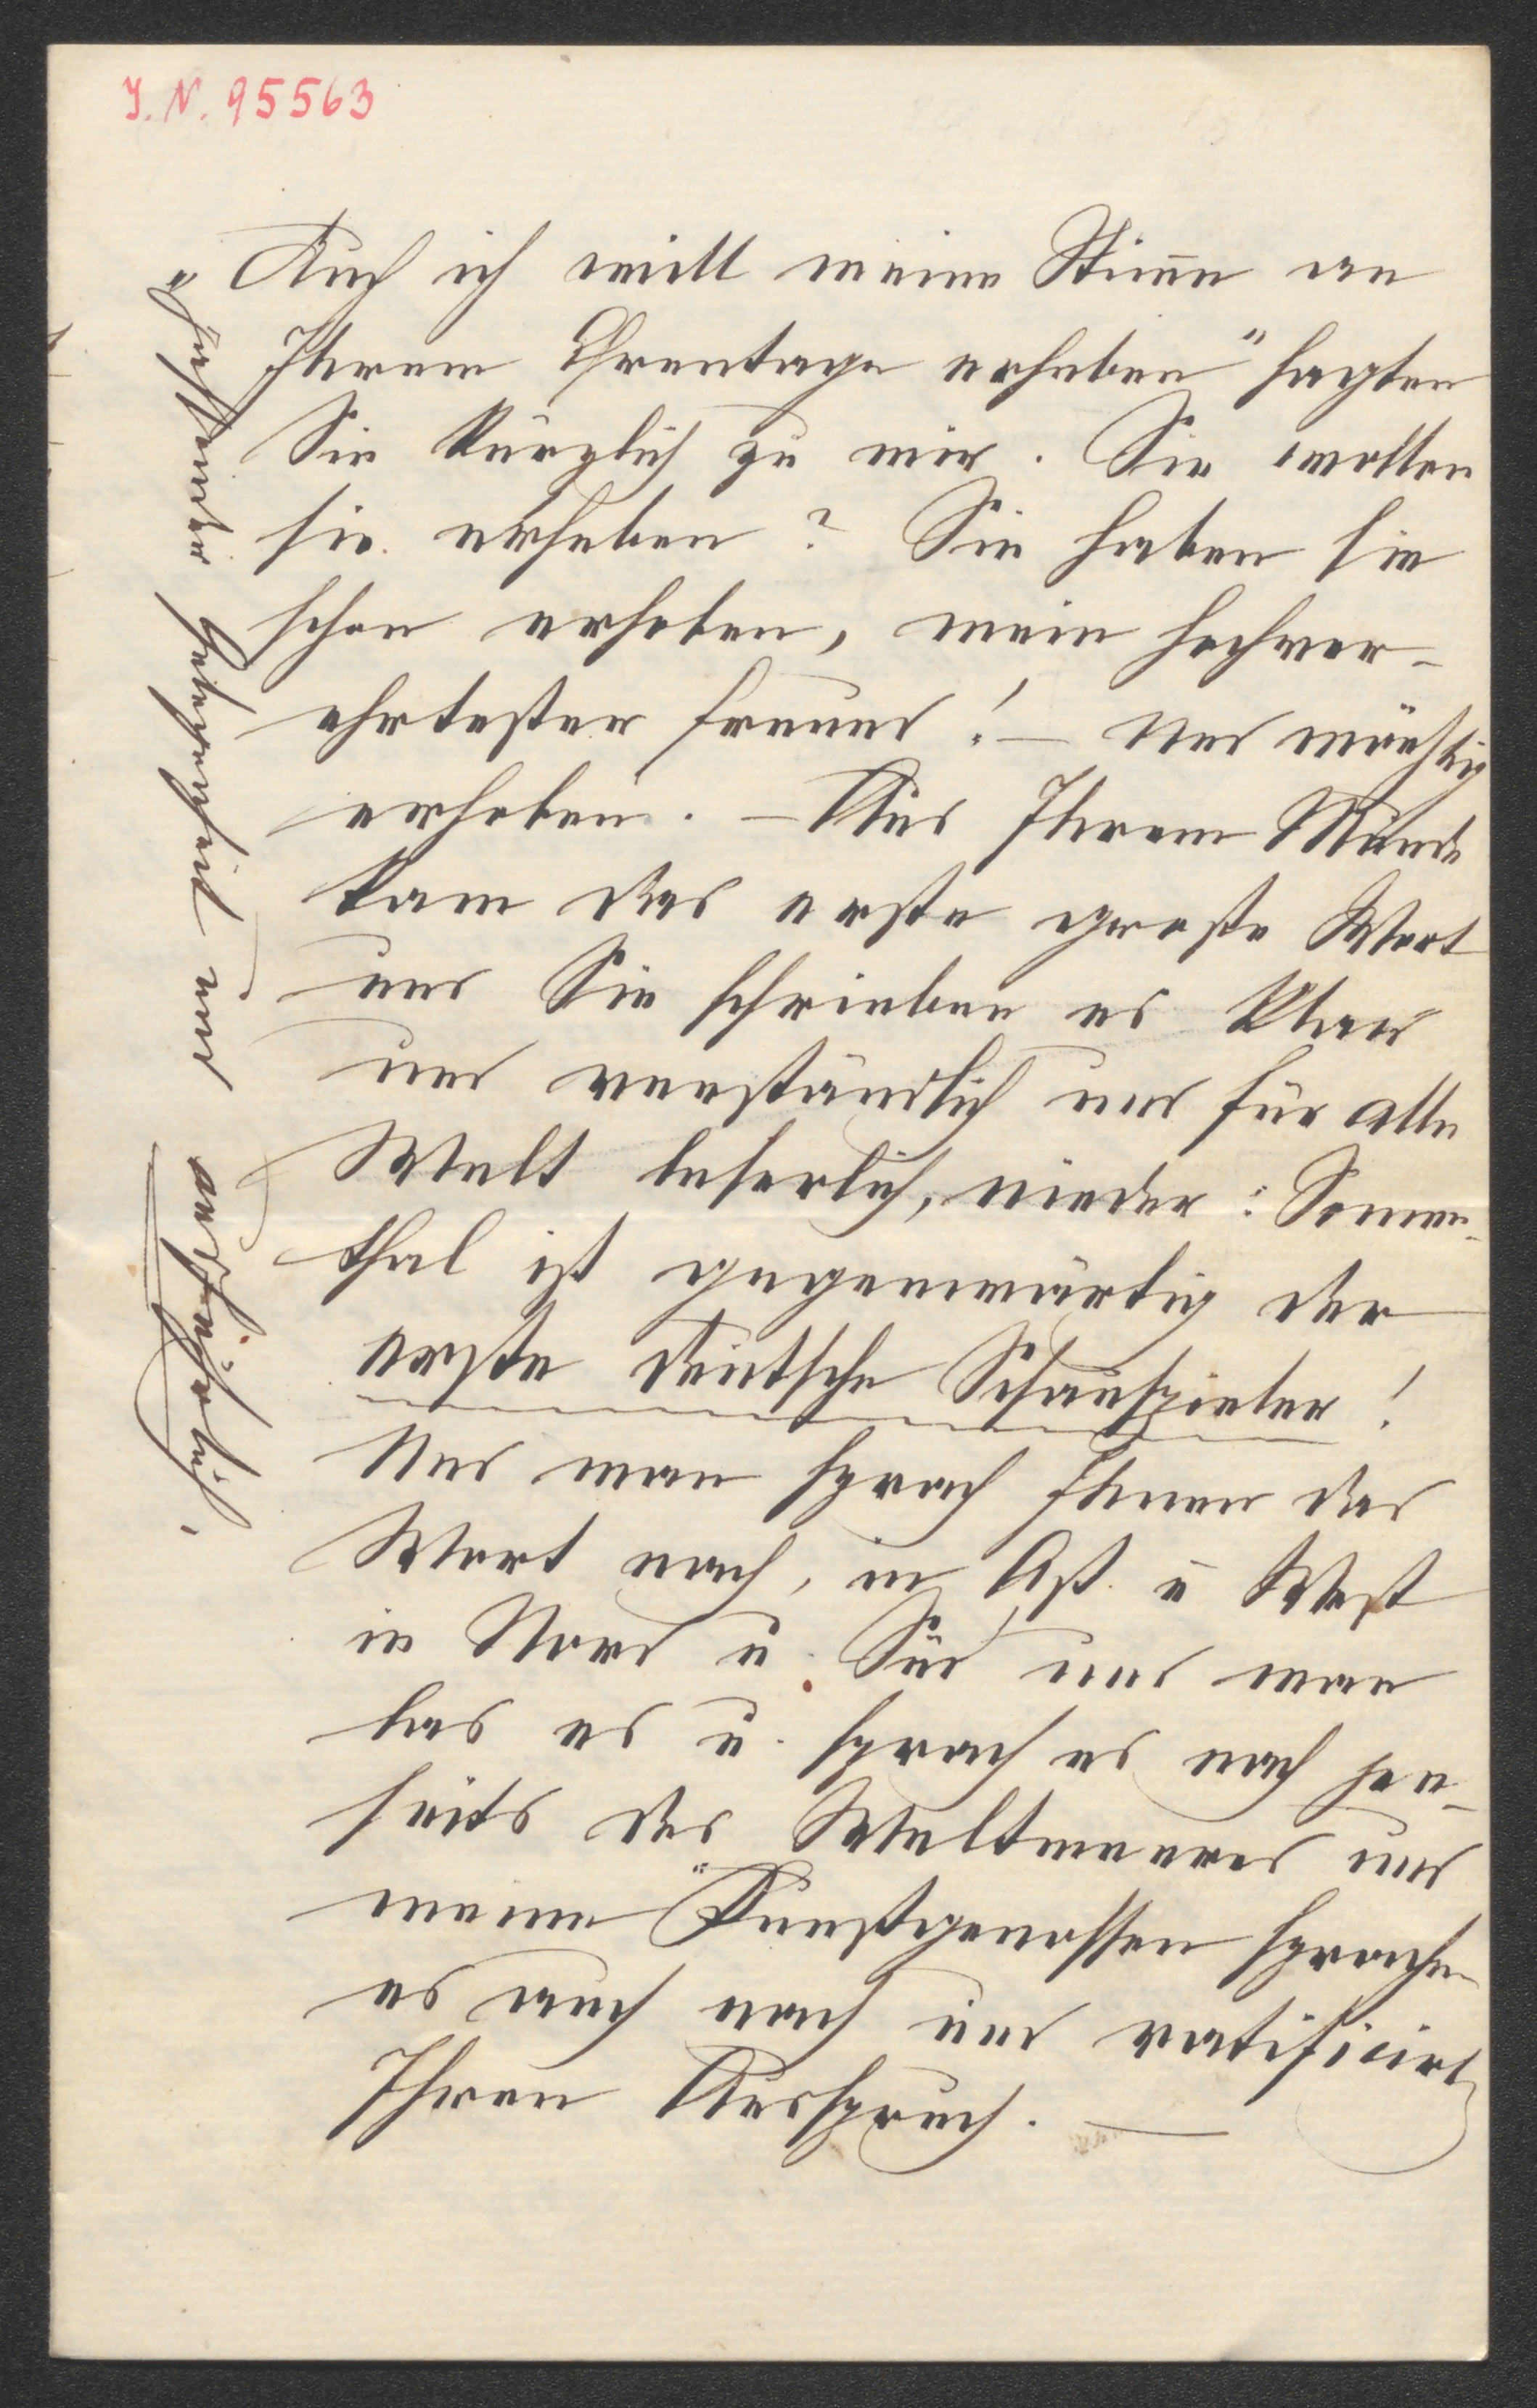 J. N. 95563
Auch ich will meine Stimme an
Ihrem Ehrentage erheben" sagten
Sie kürzlich zu mir. Sie wollen
sie erheben? Sie haben sie
schon erhoben, mein hochver-
ehrtester Freund! – Und mächtig
erhoben. – Aus Ihrem Munde
kam das erste große Wort
und Sie schrieben es klar
und verständlich und für alle
Welt leserlich, nieder: Sonnen-
thal ist gegenwärtig der
erste deutsche Schauspieler!
Und man sprach Ihnen das
Wort nach, in Ost u West
in Nord u. Süd und man
las es u. sprach es nach jen-
seits des Weltmeeres und
meine Kunstgenossen sprachen
es auch nach und ratificirt
Ihren Ausspruch. –
bei Gelegenheit und ausführlich.